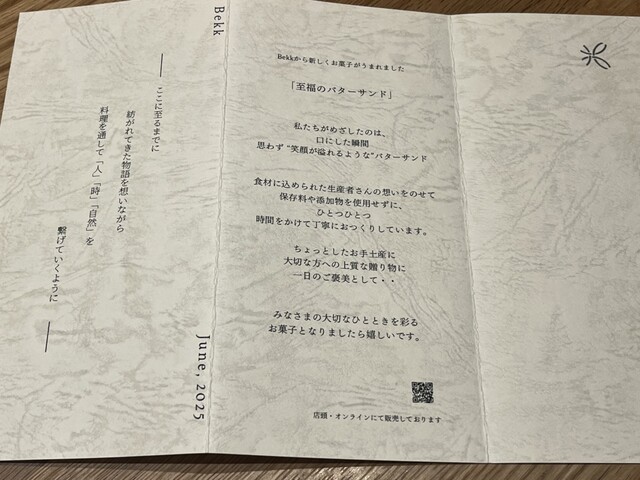 Bekk
ここに至るまでに
紡がれてきた物語を想いながら
料理を通して「人」「時」「自然」を
繋げていくように
June, 2025
Bekkから新しくお菓子がうまれました
「至福のバターサンド」
私たちがめざしたのは、
口にした瞬間
思わず“笑顔が溢れるような”バターサンド
食材に込められた生産者さんの想いをのせて
保存料や添加物を使用せずに、
ひとつひとつ
時間をかけて丁寧におつくりしています。
ちょっとしたお手土産に
大切な方への上質な贈り物に
一日のご褒美として・・
みなさまの大切なひとときを彩る
お菓子となりましたら嬉しいです。
店頭・オンラインにて販売しております